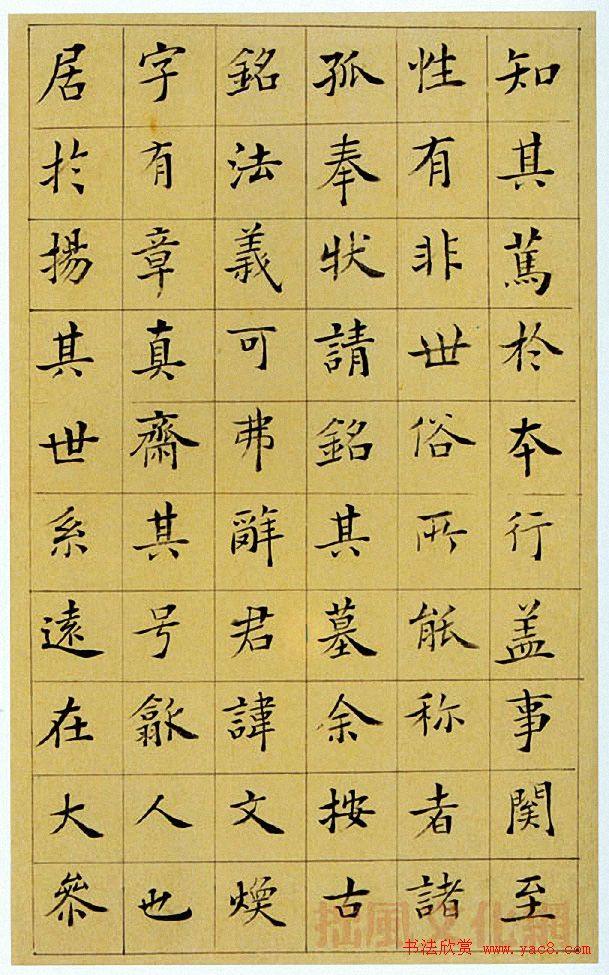 知其篤於本行盖事関至
性有非世俗所能称者諸
孤奉状請銘其墓余按古
銘法義可弗辭君諱文煥
字有章真齋其号歙人也
居於揚其世系遠在大參
拙風文化網
书法欣赏 www.yac8.com